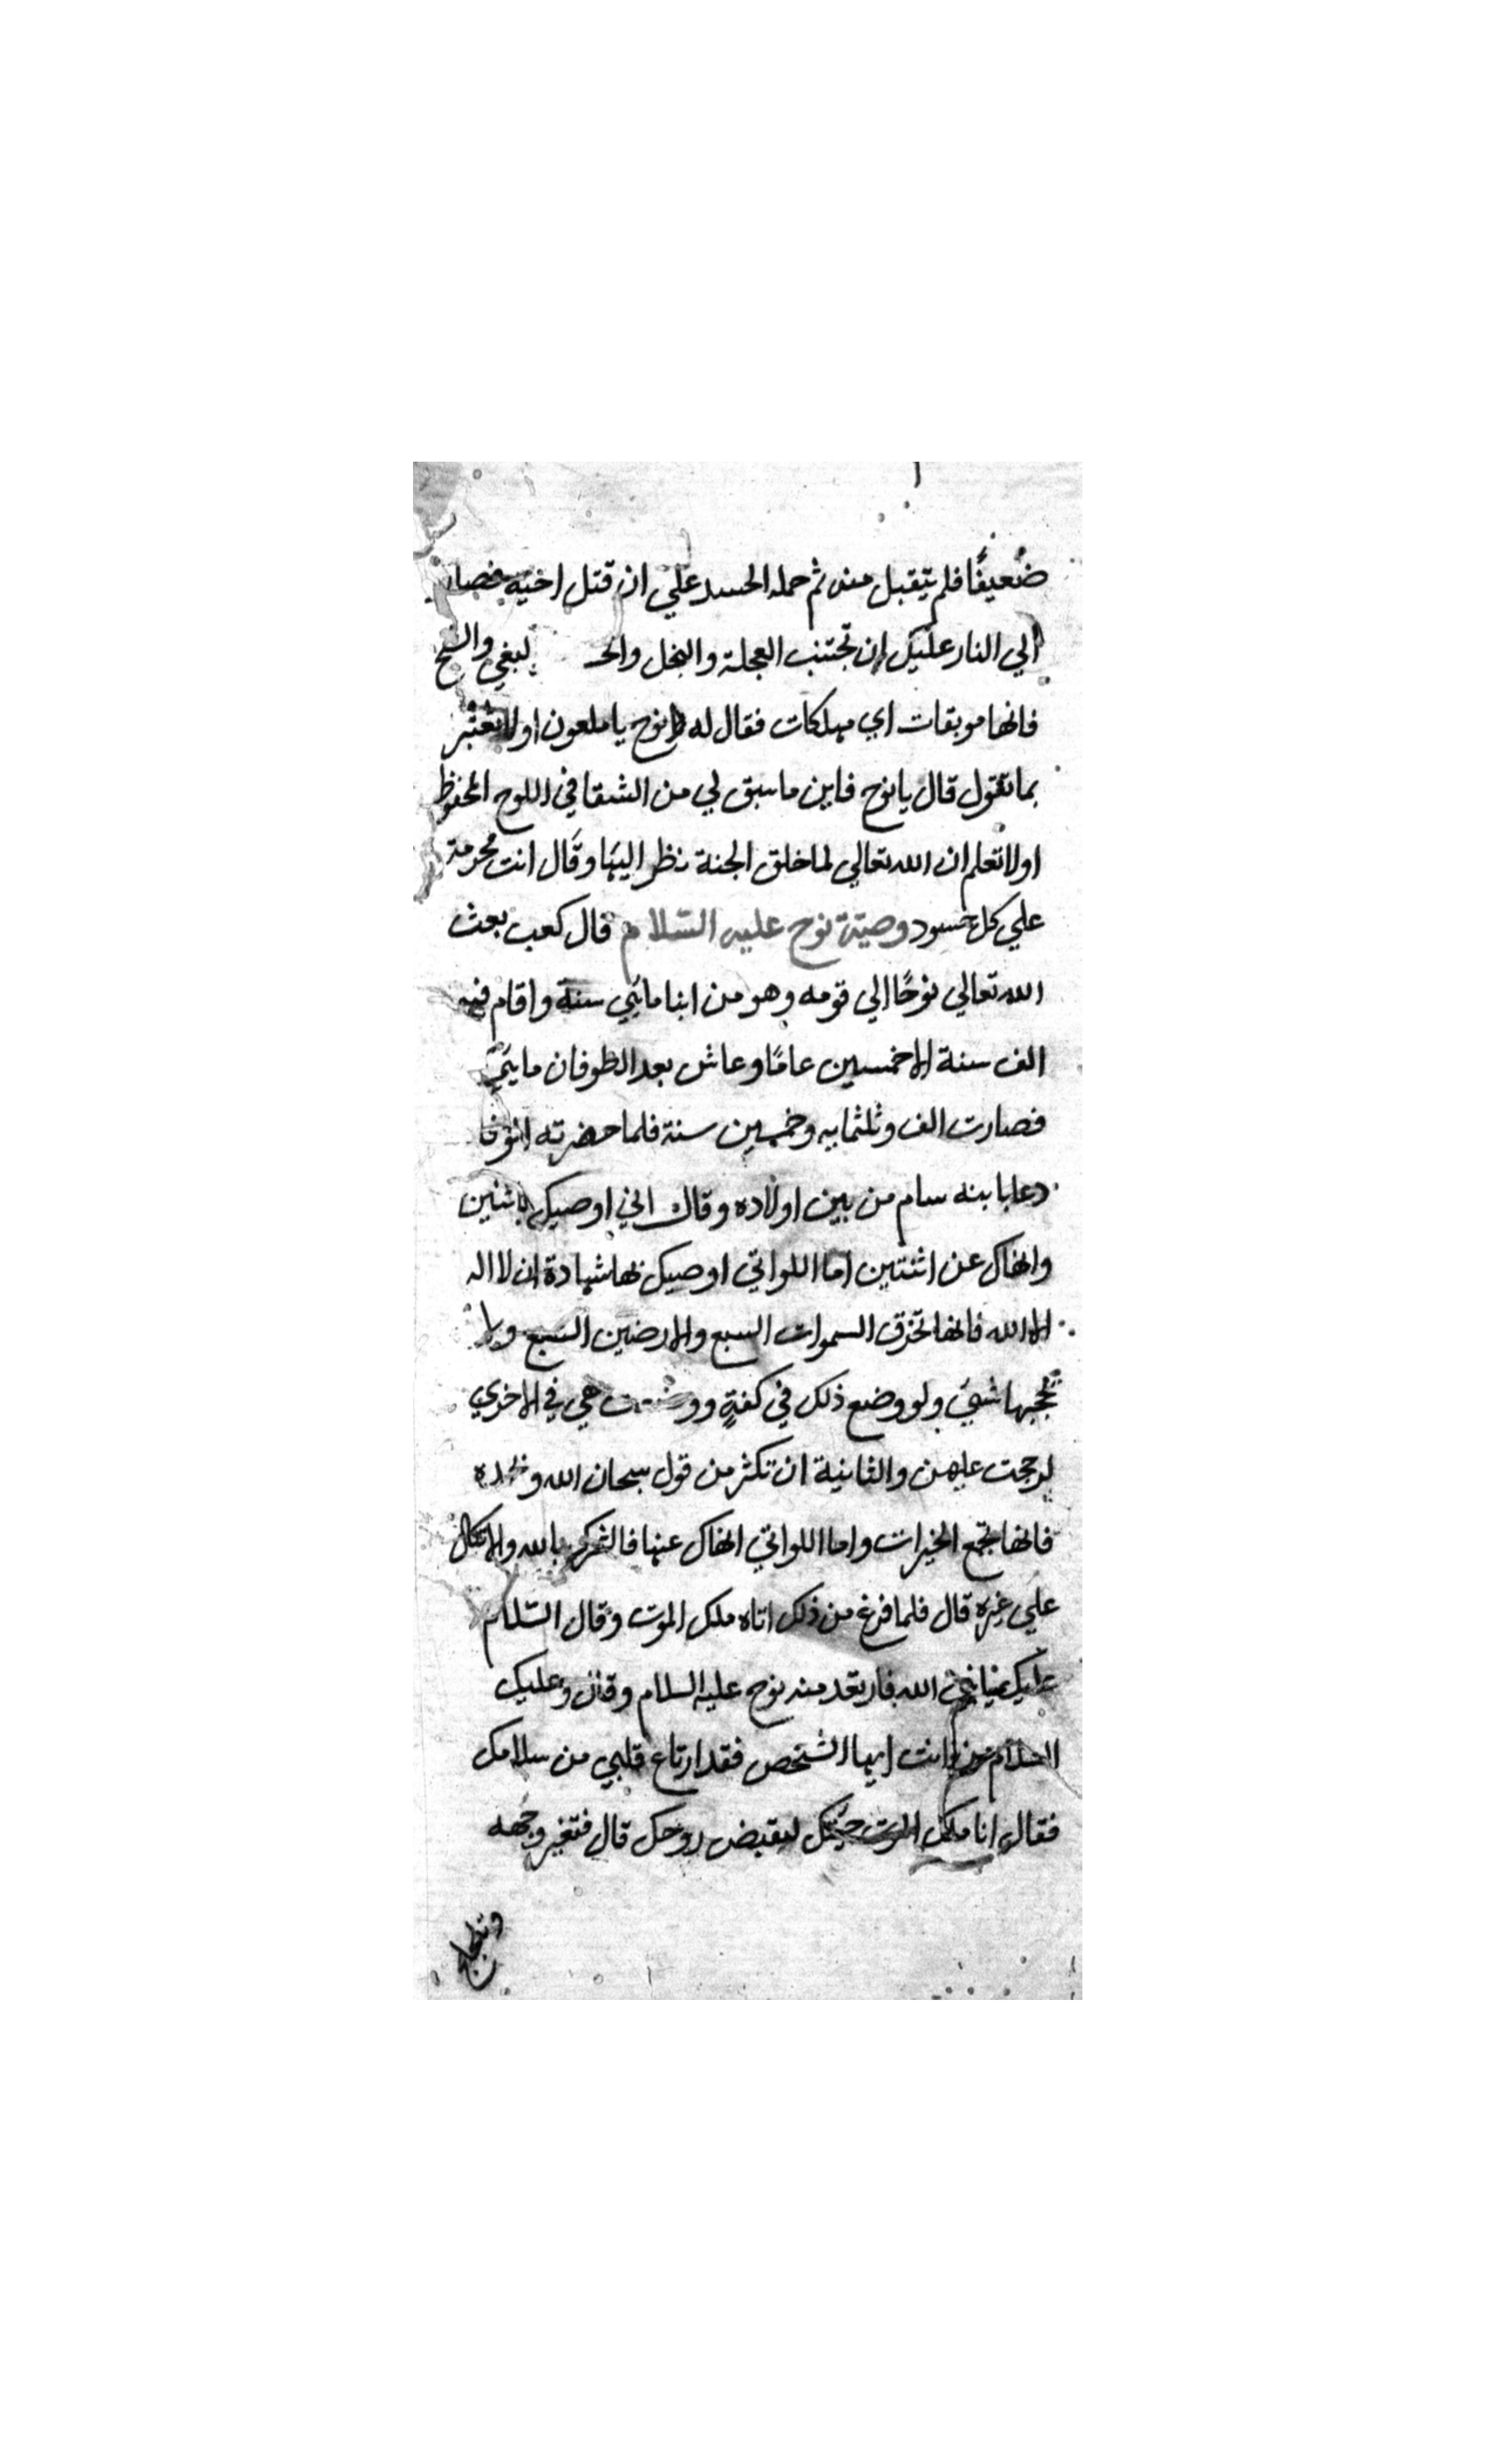 ضعيفًا فلم يتقبل منه ثم حمله الحسد علي ان قتل اخيه فصار
الي النار عليك ان تجتنب العجلة والبخل لبغي والشح
فانها موبقات اي مهلكات فقال له نوح يا ملعون اولا تعتبر
بما تقول قال يا نوح فاين ما سبق لي من الشقا في اللوح المحفوظ
اولا تعلم ان الله تعالي لما خلق الجنة نظر اليها وقال انت محرمة
علي كل حسود وصية نوح عليه السّلام قال كعب بعث
الله تعالي نوحًا الي قومه وهو من ابنا مايتي سنة واقام فيهم
الف سنة الا خمسين عامًا وعاش بعد الطوفان مايتي
فصارت الف وثلثمايه وخمسين سنة فلما حضرته الوفا
دعا بابنه سام من بين اولاده وقال اني اوصيك باثنين
وانهاك عن اثنتين اما اللواتي اوصيك بها شهادة ان لا اله
الا الله فانها تخرق السموات السبع والارضين السّبع ولا
يحجبها شيئ ولو وضع ذلك في كفةٍ ووضعت هي في الاخري
لرجحت عليهن والثانية ان تكثر من قول سبحان الله وبحمده
فانها تجمع الخيرات واما اللواتي انهاك عنها فالشرك بالله والاتكال
علي غيره قال فلما فرغ من ذلك اتاه ملك الموت وقال السّلام
عليك يا نبي الله فارتعد منه نوح عليه السلام وقال وعليك
السلام من انت ايها الشخص فقد ارتاع قلبي من سلامك
فقال انا ملك الموت جيتك ليقبض روحك قال فتغير وجهه